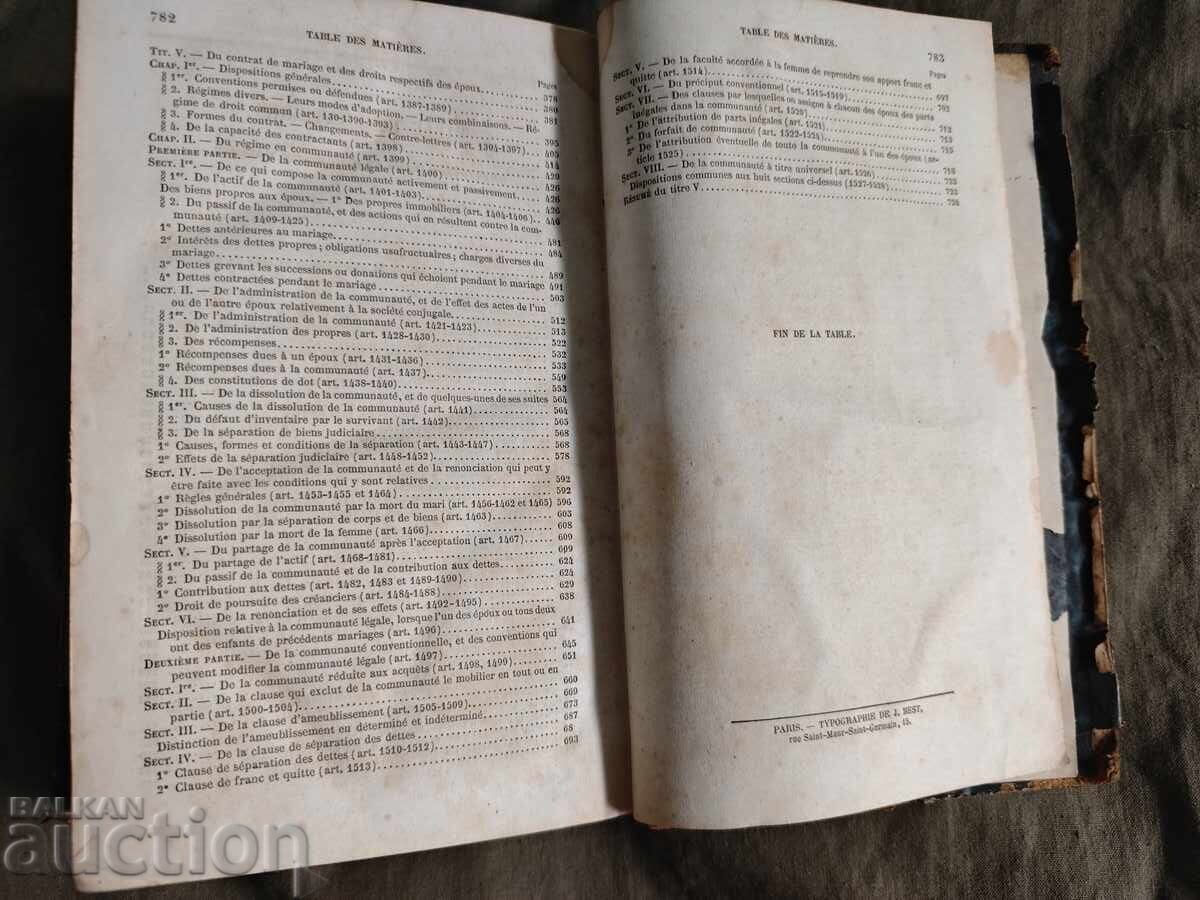 782
TABLE DES MATIÈRES.
Pages
TIT. V. — Du contrat de mariage et des droits respectifs des époux.
CHAP. Ier. — Dispositions générales. 378
§ 1er. Conventions permises ou défendues (art. 1387-1389). 380
§ 2. Régimes divers. — Leurs modes d'adoption. — Leurs combinaisons. — Ré-
gime de droit commun (art. 130-1390-1393). 381
§ 3. Formes du contrat. — Changements. — Contre-lettres (art. 1394-1397). 395
§ 4. De la capacité des contractants (art. 1398). 405
CHAP. II. — Du régime en communauté (art. 1399). 414
PREMIÈRE PARTIE. — De la communauté légale (art. 1400). 420
SECT. Ire. — De ce qui compose la communauté activement et passivement. 426
§ 1er. De l'actif de la communauté (art. 1401-1403). 426
Des biens propres aux époux. — 1° Des propres immobiliers (art. 1404-1406). 446
§ 2. Du passif de la communauté, et des actions qui en résultent contre la com-
munauté (art. 1409-1425)
1° Dettes antérieures au mariage. 481
2° Intérêts des dettes propres; obligations usufructuaires; charges diverses du 484
mariage
3° Dettes grevant les successions ou donations qui échoient pendant le mariage 489
4° Dettes contractées pendant le mariage 491
SECT. II. — De l'administration de la communauté, et de l'effet des actes de l'un 503
ou de l'autre époux relativement à la société conjugale.
§ 1er. De l'administration de la communauté (art. 1421-1423) 512
§ 2. De l'administration des propres (art. 1428-1430) 513
§ 3. Des récompenses 522
1° Récompenses dues à un époux (art. 1431-1436) 532
2° Récompenses dues à la communauté (art. 1437) 533
§ 4. Des constitutions de dot (art. 1438-1440) 549
SECT. III. — De la dissolution de la communauté, et de quelques-unes de ses suites 553
§ 1er. Causes de la dissolution de la communauté (art. 1441) 564
§ 2. Du défaut d'inventaire par le survivant (art. 1442) 564
§ 3. De la séparation de biens judiciaire 565
1° Causes, formes et conditions de la séparation (art. 1443-1447) 568
2° Effets de la séparation judiciaire (art. 1448-1452) 578
SECT. IV. — De l'acceptation de la communauté et de la renonciation qui peut y
être faite avec les conditions qui y sont relatives 592
1° Règles générales (art. 1453-1455 et 1464) 592
2° Dissolution de la communauté par la mort du mari (art. 1456-1462 et 1465) 596
3° Dissolution par la séparation de corps et de biens (art. 1463) 603
4° Dissolution par la mort de la femme (art. 1466) 608
SECT. V. — Du partage de la communauté après l'acceptation (art. 1467) 609
§ 1er. Du partage de l'actif (art. 1468-1481) 609
§ 2. Du passif de la communauté et de la contribution aux dettes 624
1° Contribution aux dettes (art. 1482, 1483 et 1489-1490) 624
2° Droit de poursuite des créanciers (art. 1484-1488) 629
SECT. VI. — De la renonciation et de ses effets (art. 1492-1495) 638
Disposition relative à la communauté légale, lorsque l'un des époux ou tous deux
ont des enfants de précédents mariages (art. 1496) 641
DEUXIÈME PARTIE. — De la communauté conventionnelle, et des conventions qui
peuvent modifier la communauté légale (art. 1497) 645
SECT. Ire. — De la communauté réduite aux acquêts (art. 1498, 1499) 651
SECT. II. — De la clause qui exclut de la communauté le mobilier en tout ou en
partie (art. 1500-1504) 660
SECT. III. — De la clause d'ameublissement (art. 1505-1509) 669
Distinction de l'ameublissement en déterminé et indéterminé 673
SECT. IV. — De la clause de séparation des dettes 687
1° Clause de séparation des dettes (art. 1510-1512) 68
2° Clause de franc et quitte (art. 1513) 693
TABLE DES MATIÈRES.
783
Pages
SECT. V. — De la faculté accordée à la femme de reprendre son apport franc et
quitte (art. 1514) 697
SECT. VI. — Du préciput conventionnel (art. 1515-1519) 702
SECT. VII. — Des clauses par lesquelles on assigne à chacun des époux des parts
inégales dans la communauté (art. 1520) 713
1° De l'attribution de parts inégales (art. 1521) 713
2° Du forfait de communauté (art. 1522-1524) 715
3° De l'attribution éventuelle de toute la communauté à l'un des époux (ar-
ticle 1525) 718
SECT. VIII. — De la communauté à titre universel (art. 1526) 723
Dispositions communes aux huit sections ci-dessus (1527-1528) 725
Résumé du titre V 726
FIN DE LA TABLE.
PARIS. — TYPOGRAPHIE DE J. BEST,
rue Saint-Maur-Saint-Germain, 15.
BALKAN
auction